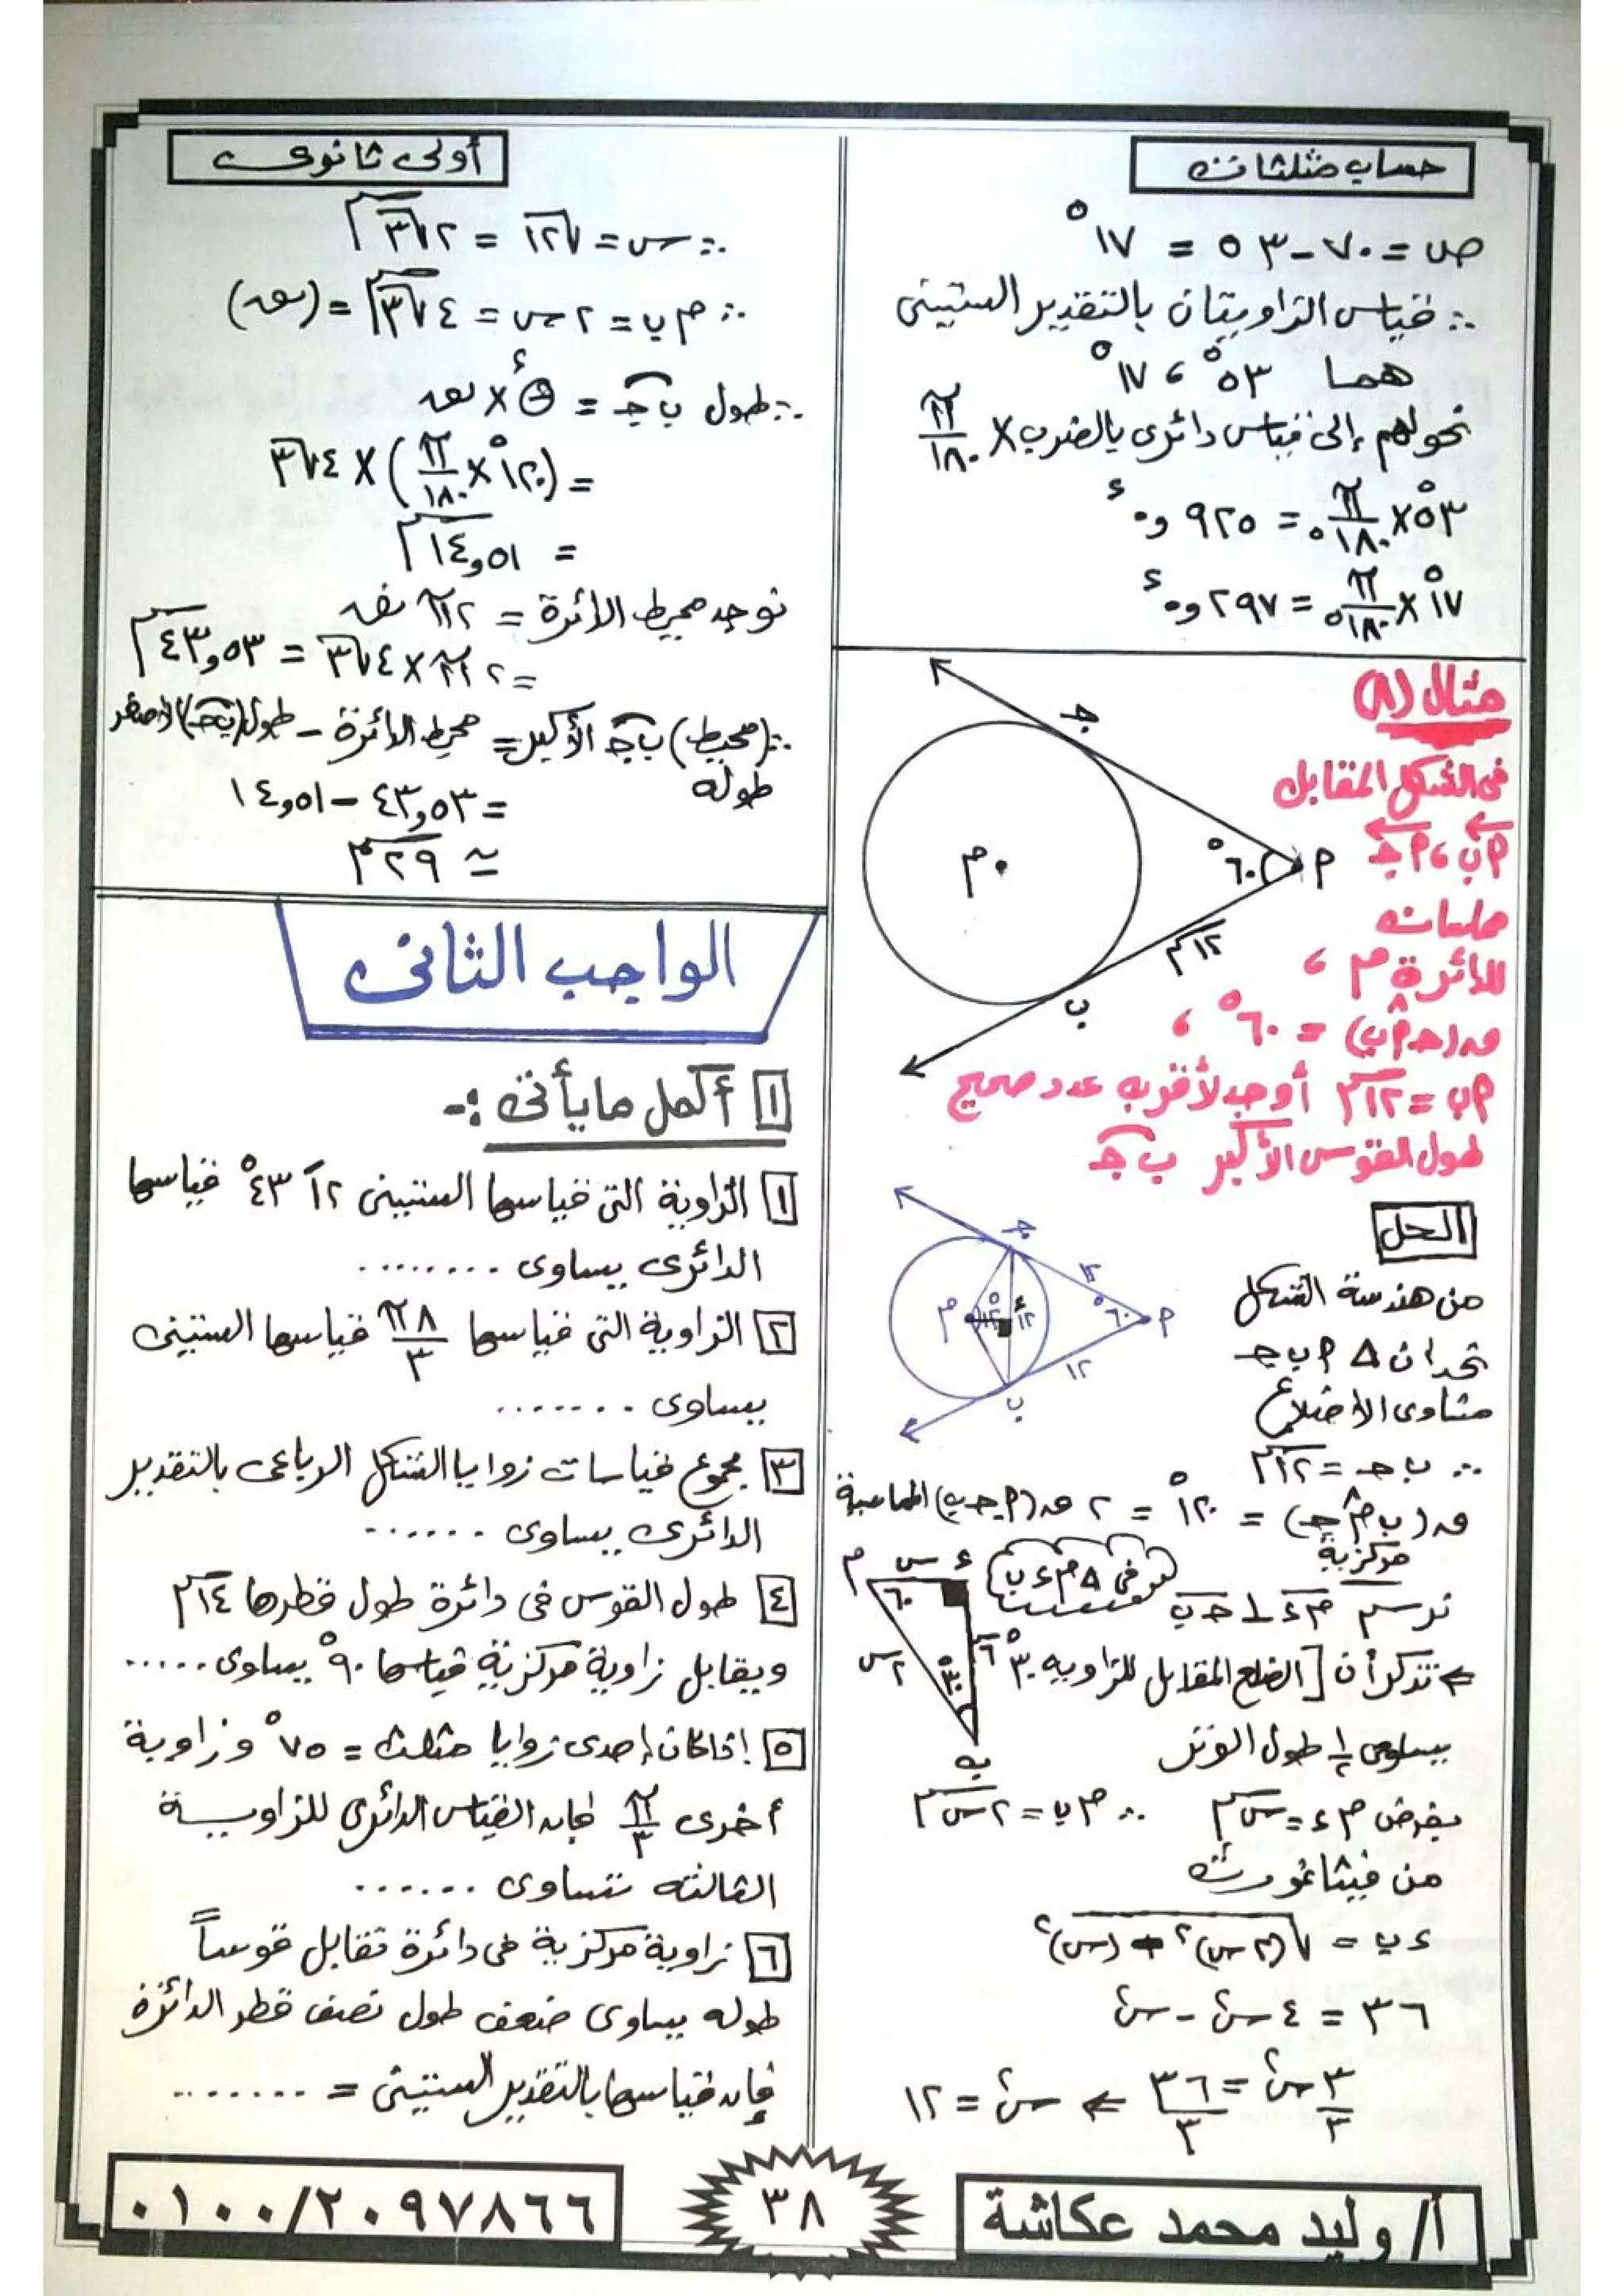 حساب مثلثات
ص = ٧٠ - ٥٣ = ١٧°
∴ قياس الزاويتان بالتقدير الستينى
هما ٥٣° ، ١٧°
نحولهم إلى قياس دائرى بالضرب × π/١٨٠
٥٣° × π/١٨٠° = ٩٢٥و٠ ء
١٧° × π/١٨٠° = ٢٩٧و٠ ء
مثال (٨)
فى الشكل المقابل
م ب ، م جـ
مماسات
للدائرة م ،
ق(جـ م ب) = ٦٠° ،
م ب = ١٢سم أوجد لأقرب عدد صحيح
طول القوس الأكبر ب جـ
جـ
م
٦٠°
م
١٢سم
ب
الحل
من هندسة الشكل
نجد ان Δ م ب جـ
متساوى الاضلاع
∴ ب جـ = ١٢سم
ق(ب م جـ) = ١٢٠° = ٢ ق(م جـ ب) المماسية
مركزية
جـ
١٢
م
١٢٠°
ء
١٢
٦٠°
م
١٢
ب
نرسم م ء ⊥ جـ ب
فى Δ م ء ب
م س ء
٦٠
٢س
٣٠°
٦سم
ب
⇐ نتذكر أن [الضلع المقابل للزاويه ٣٠°
يساوى ١/٢ طول الوتر
بفرض م ء = س سم ∴ م ب = ٢س سم
من فيثاغورث
ء ب = √(٢س)² - (س)²
٣٦ = ٤س² - س²
٣س²/٣ = ٣٦/٣ ⇐ س² = ١٢
أولى ثانوى
∴ س = √١٢ = ٢√٣ سم
∴ م ب = ٢س = ٤√٣ سم = (نق)
∴ طول ب جـ = θء × نق
= (١٢٠° × π/١٨٠) × ٤√٣
= ٥١و١٤سم
نوجد محيط الدائرة = ٢π نق
= ٢π × ٤√٣ = ٥٣و٤٣سم
∴ (محيط) ب جـ الأكبر = محيط الدائرة - طول (ب جـ) الأصغر
طوله
= ٥٣و٤٣ - ٥١و١٤
≃ ٢٩سم
الواجب الثانى
١ أكمل ما يأتى :-
١ الزاوية التى قياسها الستينى ١٢َ ٤٣° قياسها
الدائرى يساوى ........
٢ الزاوية التى قياسها ٨π/٣ قياسها الستينى
يساوى .......
٣ مجموع قياسات زوايا الشكل الرباعى بالتقدير
الدائرى يساوى ......
٤ طول القوس فى دائرة طول قطرها ١٤سم
ويقابل زاوية مركزية قياسها ٩٠° يساوى .....
٥ إذا كان إحدى زوايا مثلث = ٧٥° وزاوية
أخرى π/٣ فإن القياس الدائرى للزاوية
الثالثه تساوى ......
٦ زاوية مركزية فى دائرة تقابل قوساً
طوله يساوى ضعف طول نصف قطر الدائرة
فإن قياسها بالتقدير الستينى = .......
أ/ وليد محمد عكاشة
٣٨
٠١٠٠/٢٠٩٧٨٦٦